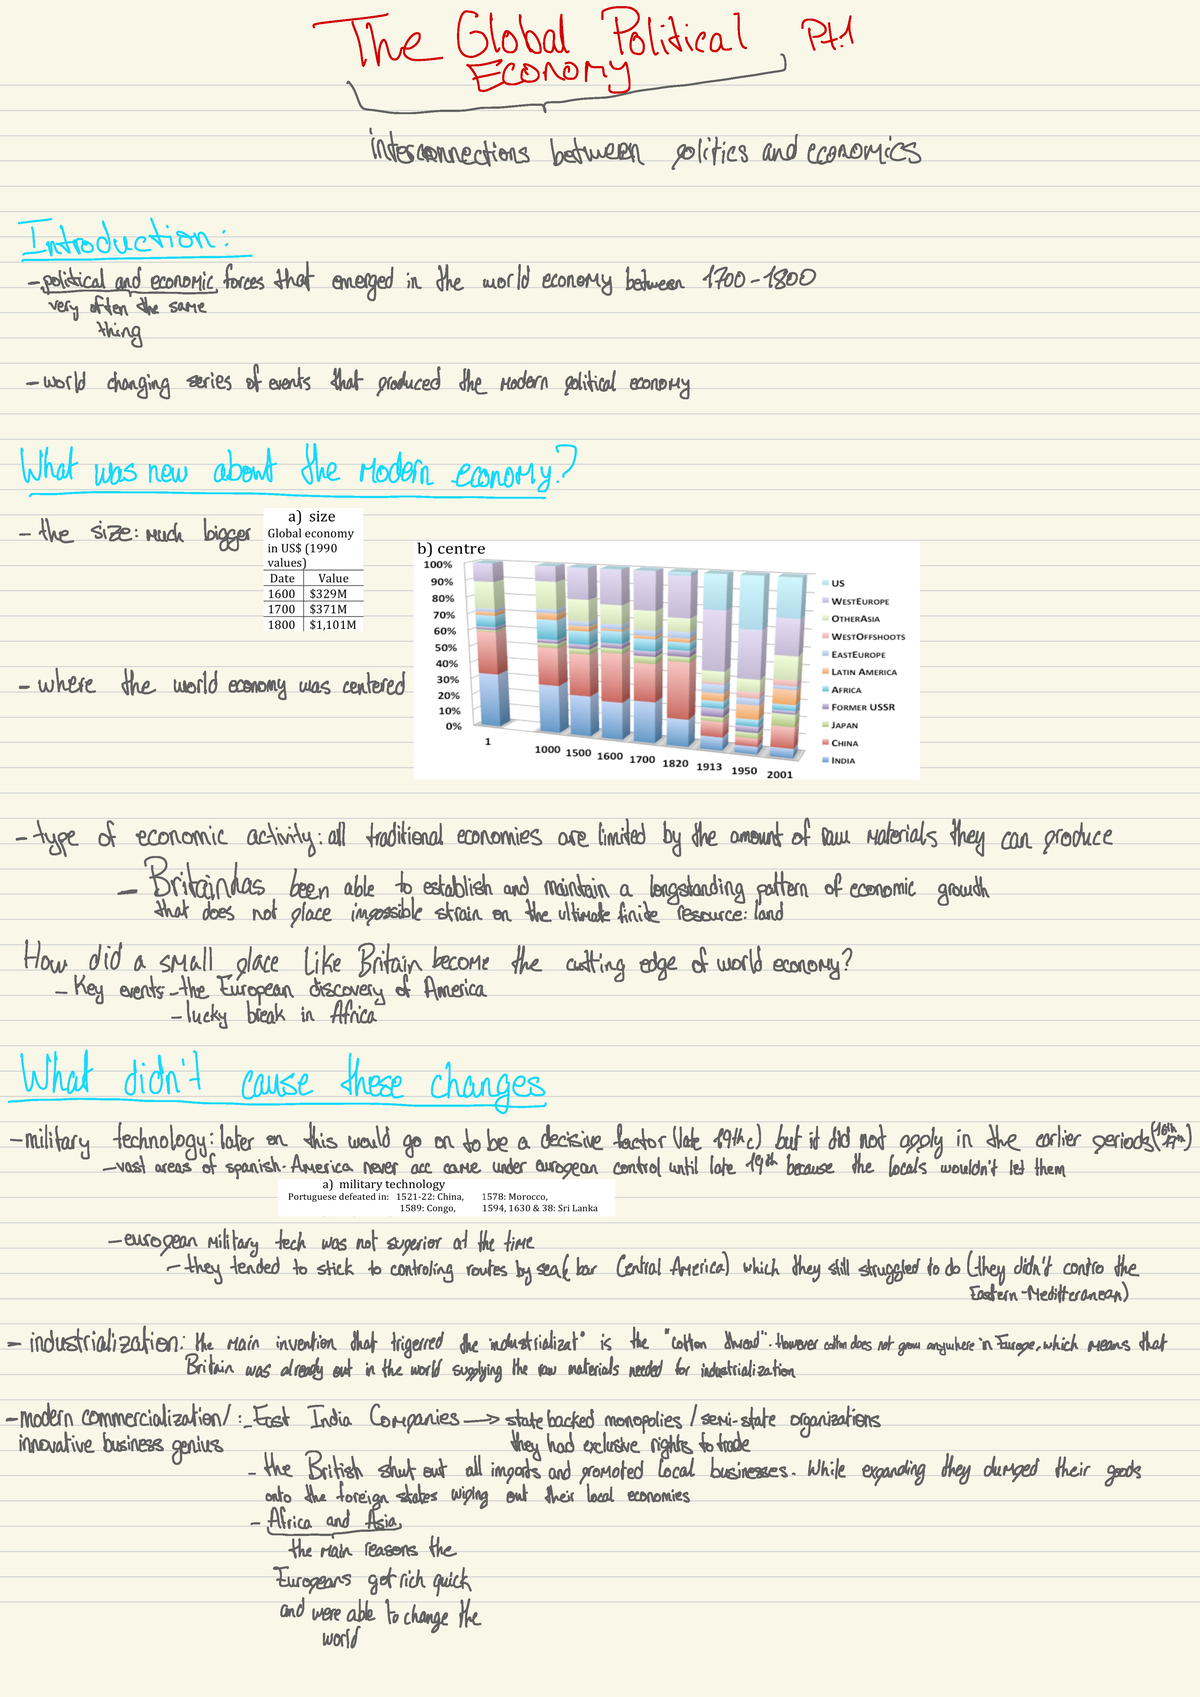 The Global Political Pt.1
Economy
interconnections between politics and economics
Introduction:
- political and economic forces that emerged in the world economy between 1700-1800
very often the same
thing
- world changing series of events that produced the modern political economy
What was new about the modern economy?
- the size: much bigger
a) size
Global economy
in US$ (1990
values)
Date Value
1600 $329M
1700 $371M
1800 $1,101M
b) centre
100%
90%
80%
70%
60%
50%
40%
30%
20%
10%
0%
1 1000 1500 1600 1700 1820 1913 1950 2001
US
WESTEUROPE
OTHERASIA
WESTOFFSHOOTS
EASTEUROPE
LATIN AMERICA
AFRICA
FORMER USSR
JAPAN
CHINA
INDIA
- where the world economy was centered
- type of economic activity: all traditional economies are limited by the amount of raw materials they can produce
- Britain has been able to establish and maintain a longstanding pattern of economic growth
that does not place impossible strain on the ultimate finite resource: land
How did a small place like Britain become the cutting edge of world economy?
- Key events - the European discovery of America
- lucky break in Africa
What didn't cause these changes
- military technology: later on this would go on to be a decisive factor (late 19th c) but it did not apply in the earlier periods (16th 17th)
- vast areas of spanish-America never acc came under european control until late 19th because the locals wouldn't let them
a) military technology
Portuguese defeated in: 1521-22: China, 1578: Morocco,
1589: Congo, 1594, 1630 & 38: Sri Lanka
- european military tech was not superior at the time
- they tended to stick to controling routes by sea (bar Central America) which they still struggled to do (they didn't contro the
Eastern-Meditteranean)
- industrialization: the main invention that trigerred the industrializat° is the "cotton thread". However cotton does not grow anywhere in Europe, which means that
Britain was already out in the world supplying the raw materials needed for industrialization
- modern commercialization/ : - East India Companies → state backed monopolies / semi-state organizations
innovative business genius they had exclusive rights to trade
- the British shut out all imports and promoted local businesses. While expanding they dumped their goods
onto the foreign states wiping out their local economies
- Africa and Asia,
the main reasons the
Europeans got rich quick
and were able to change the
world